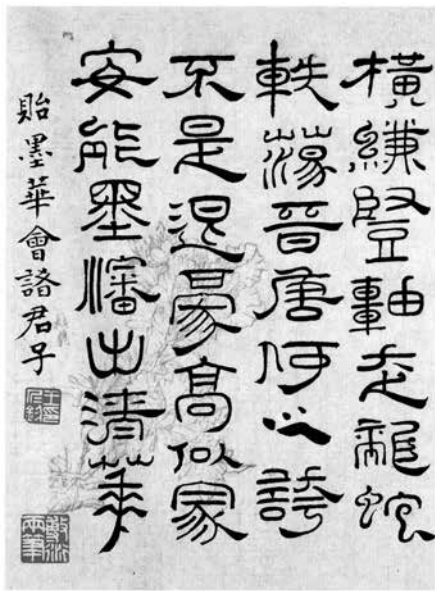 橫縑豎軸走龍蛇
軼蕩晉唐何以誇
不是退豪高似冢
安能墨瀋出清華
貽墨華會諸君子